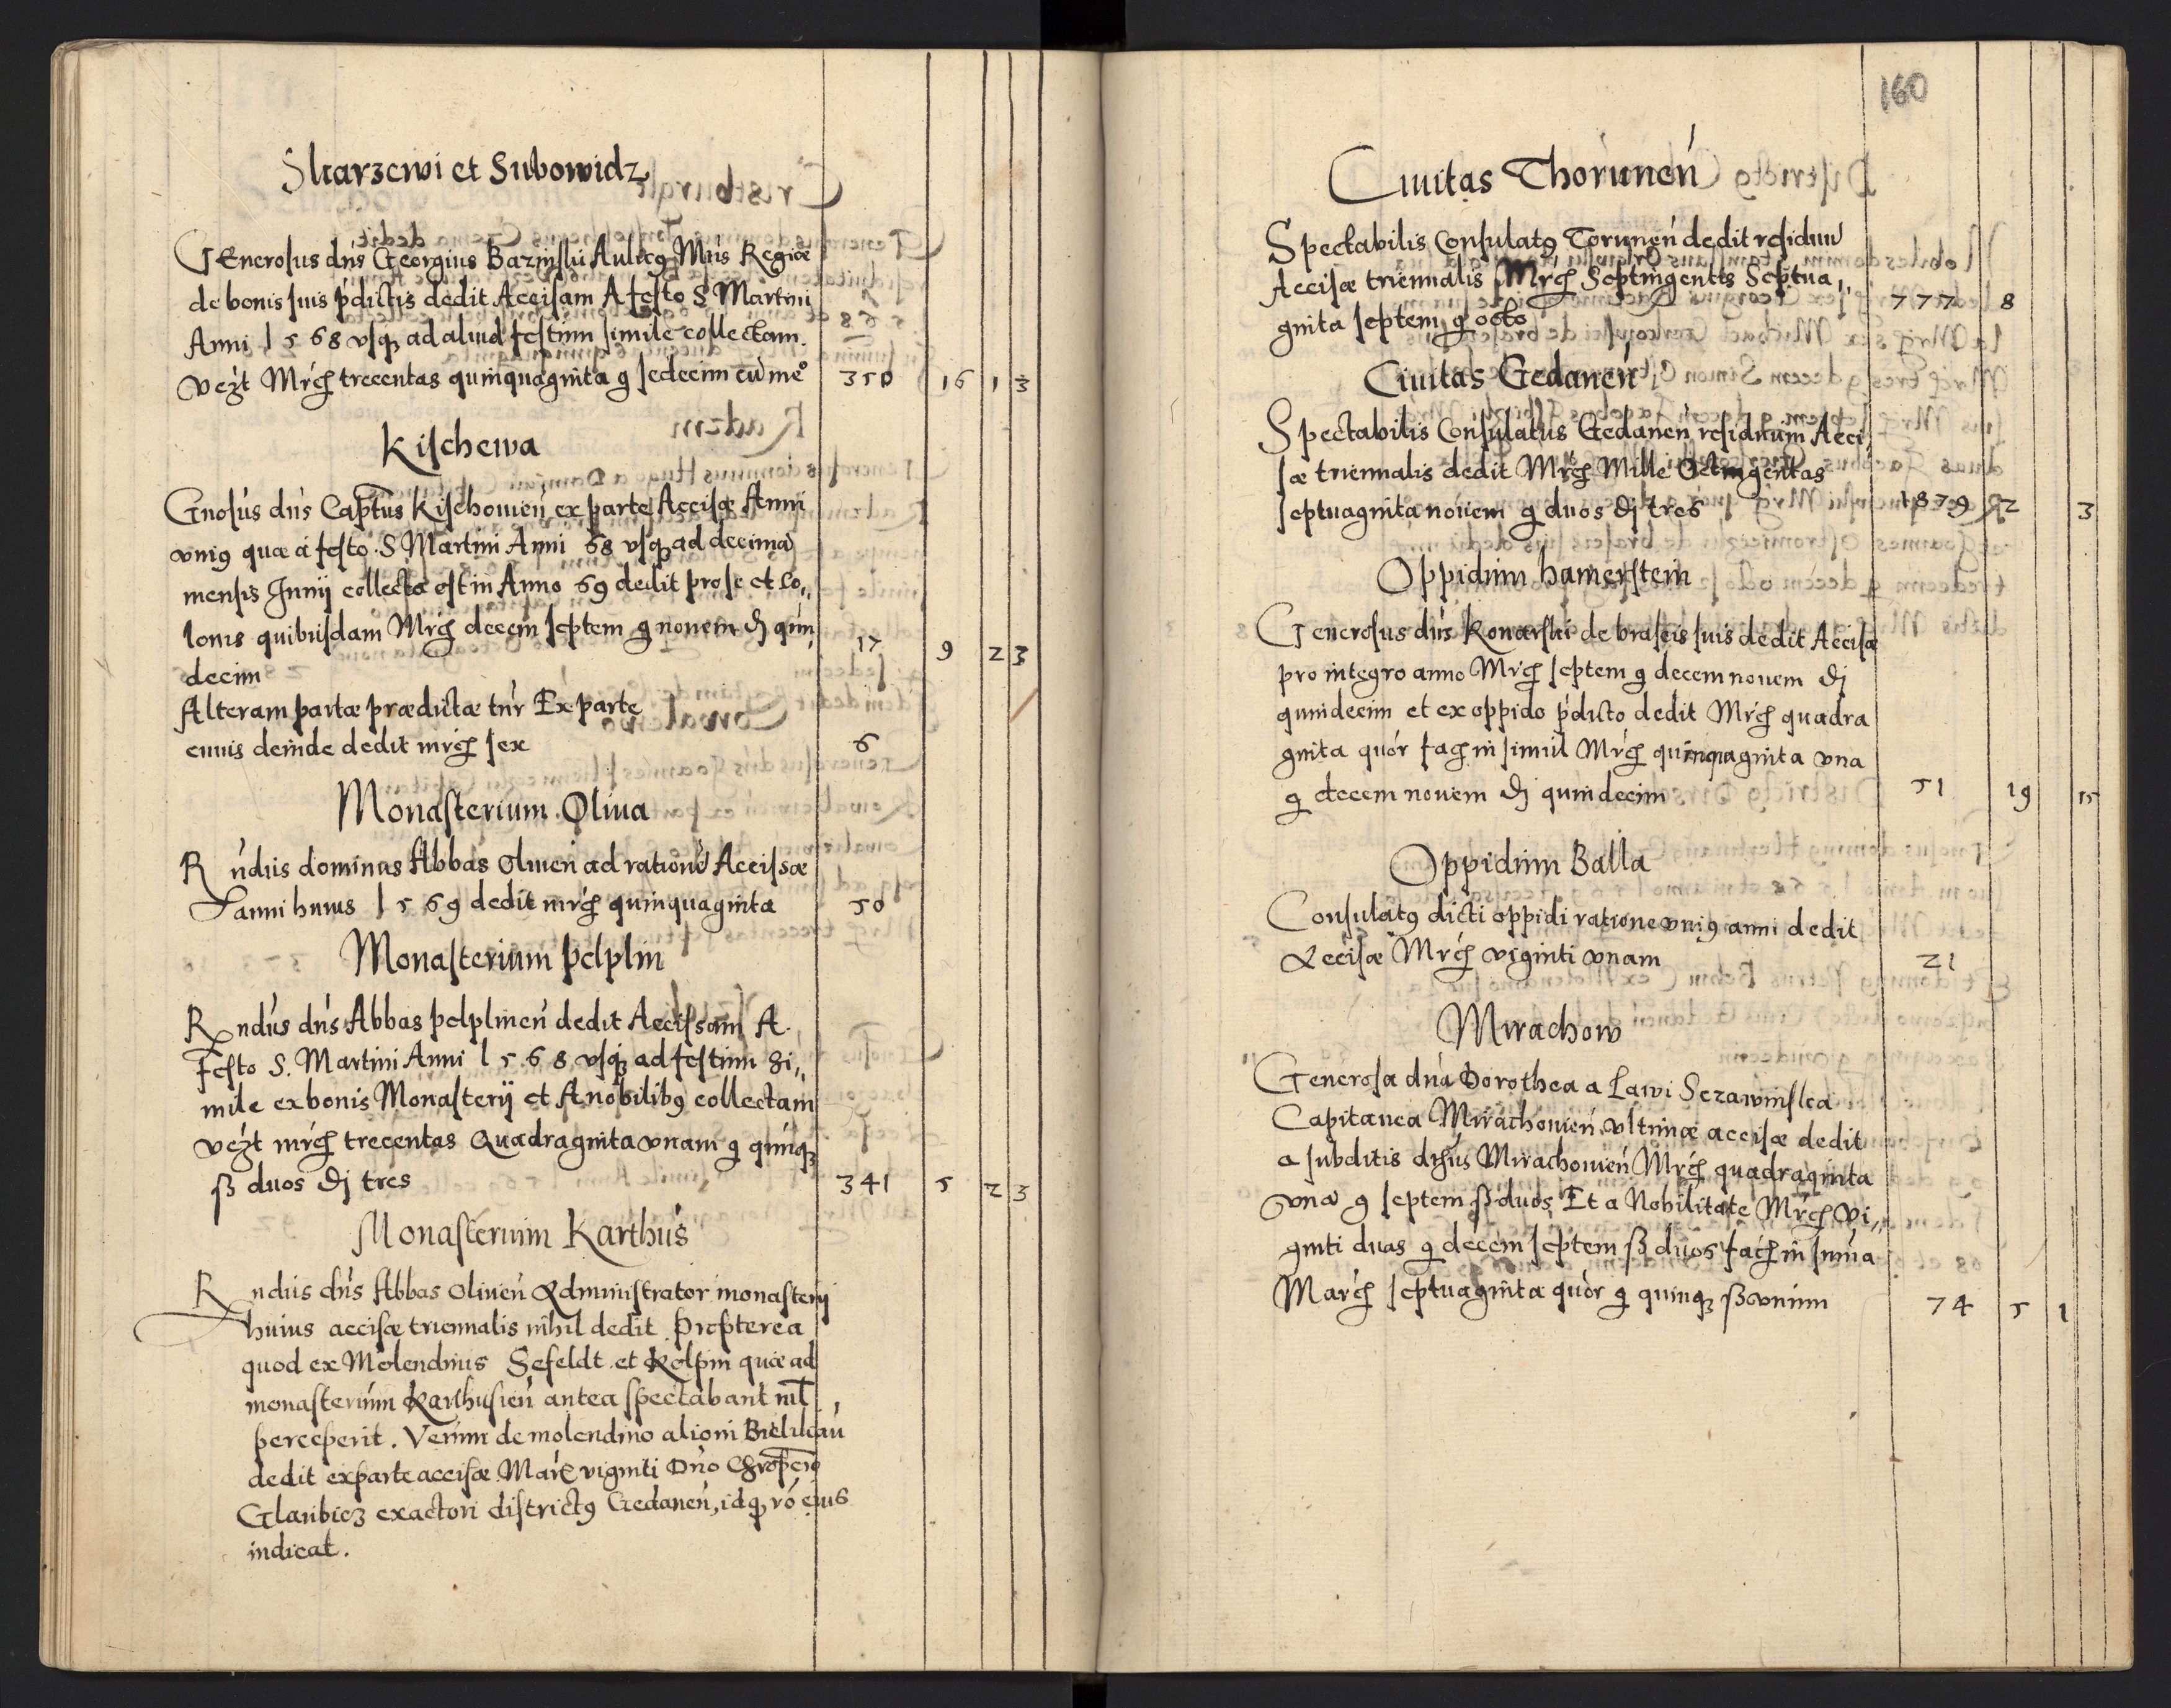 Skarzewi et Subowidz
GEnerosus dns Georgius Bazinski Aulicq Mtis Regiæ
de bonis suis pdictis dedit Accisam A festo S Martini
Anni 1568 vsq ad aliud festum simile collectam.
vezt Mrcħ trecentas quinquaginta g sedecim cu me° 350 16 1 3
Kischewa
Gnosus dns Capts Kischouien ex parte Accisæ Anni
vniq quæ a festo S Martini Anni 68 vsq ad decima
mensis Junij collecta est in Anno 69 dedit pro se et Co„
lonis quibusdam Mrcħ decem septem g nouem ȡ quin„ 17 9 2 3
decim
Alteram partæ prædictæ tnr Ex parte
cuuis deinde dedit mrcħ sex 6
Monasterium Oliua
Rndus dominus Abbas Oliuen ad ratione Accissæ
anni huius 1569 dedit mrcħ quinquaginta 50
Monasterium pelplin
Rndus dns Abbas pelplinen dedit Accissam A
Festo S. Martini Anni 1568 vsq ad festum Si„
mile ex bonis Monasterij et A nobilibq collectam
vezt mrcħ trecentas Quadraginta vnam g quinq
ß duos ȡ tres 341 5 2 3
Monasterium Karthus
Rndus dns Abbas Oliuen Administrator monasterij
huius accisæ triennalis nihil dedit Propterea
quod ex Molendinis Sefeldt et Kolpin quæ ad
monasterium Karthusien antea spectabant nil
perceperit. Verum de molendino alioni Bielikau
dedit ex parte accisæ Mark viginti Dno
Glaubicz exactori districtq Gedanen, idq ro eius
indicat.
160
Ciuitas Thorunen
Spectabilis Consulatq Torunen dedit residuu
Accisæ triennalis Mrcħ Septingentis Septua„
ginta septem g octo 777 8
Ciuitas Gedanen
Spectabilis Consulatus Gedanen residuum Acci
sæ triennalis dedit Mrcħ Mille Octingentas
septuaginta nouem g duos ȡ tres 1879 2 3
Oppidum hamerstein
Generosus dns Konarski de braseis suis dedit Accisæ
pro integro anno Mrcħ septem g decem nouem ȡ
quindecim et ex oppido pdicto dedit Mrcħ quadra
ginta quor facħ in simul Mrcħ quinquaginta vna
g decem nouem ȡ quindecim 51 19 15
Oppidum Balla
Consulatq dicti oppidi ratione vniq anni dedit
Accisæ Mrcħ viginti vnam 21
Mirachow
Generosa dna Dorothea a Lawi Sczawinska
Capitanea Mirachouien vltimæ accisæ dedit
a subditis Mirachouien Mrcħ quadraginta
vna g septem ß duos Et a Nobilitate Mrcħ Vi„
ginti duas g decem septem ß duos facħ in suma
Marcħ septuaginta quor g quinq ß vnum 74 5 1